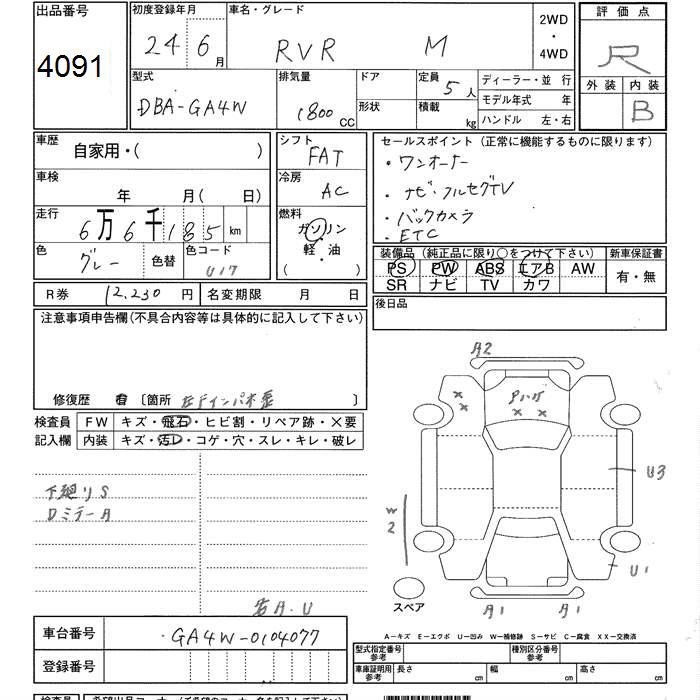 出品番号 初度登録年月 車名・グレード 2WD・4WD 評価点
4091 24 6月 RVR M R
型式 排気量 ドア 定員 5人 ディーラー・並 行 外装 内装
DBA-GA4W 1800 CC 形状 積載 kg モデル年式 年 B
ハンドル 左・右
車歴 自家用・( ) シフト FAT セールスポイント (正常に機能するものに限ります)
・ワンオーナー
車検 年 月( 日) 冷房 AC ・ナビ・フルセグTV
走行 6万6千185km 燃料 ガソリン ・バックカメラ
・ETC
色 グレー 色替 色コード U17 軽・油 ( )
装備品 (純正品に限り○をつけて下さい) 新車保証書
PS PW ABS エアB AW 有・無
SR ナビ TV カワ
R券 12,230円 名変期限 月 日 後日品
注意事項申告欄(不具合内容等は具体的に記入して下さい)
修復歴 有 〔箇所 左Fインパネ歪
検査員 FW キズ・飛石・ヒビ割・リペア跡・×要
記入欄 内装 キズ・汚レ・コゲ・穴・スレ・キレ・破レ
A2
下廻りS
Dミラ-A
U3
W2
U1
若A.U
スペア A1 A1
車台番号 GA4W-0104077
A-キズ E-エクボ U-凹み W-補修跡 S-サビ C-腐食 XX-交換済
型式指定番号 参考 種別区分番号 参考
登録番号 車庫証明用 参考 長さ cm 幅 cm 高さ cm